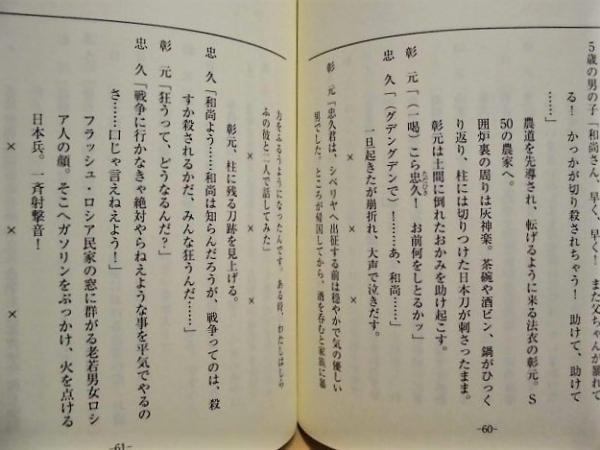 5歳の男の子「和尚さん、早く、早く！　また父ちゃんが暴れて
る！　かっかが切り殺されちゃう！　助けて、助けて
……」
農道を先導され、転げるように来る法衣の彰元。S
50の農家へ。
囲炉裏の周りは灰神楽。茶碗や酒ビン、鍋がひっく
り返り、柱には切りつけた日本刀が刺さったまま。
彰元は土間に倒れたおかみを助け起こす。
彰　元「（一喝）こら忠久！　お前何をしとるかッ」
忠　久「（グデングデンで）！……あ、和尚……」
一旦起きたが崩折れ、大声で泣きだす。
×　×　×
彰　元「忠久君は、シベリヤへ出征する前は穏やかで気の優しい
男でした。ところが帰国してから、酒を呑むと家族に暴
-60-
力をふるうようになったんです。ある時、わたしはしら
ふの彼と二人で話してみた」
×　×　×
彰元、柱に残る刀跡を見上げる。
忠　久「和尚よう……和尚は知らんだろうが、戦争ってのは、殺
すか殺されるかだ、みんな狂うんだ……」
彰　元「狂うって、どうなるんだ？」
忠　久「戦争に行かなきゃ絶対やらねえような事を平気でやるの
さ……口じゃ言えねえよう！」
フラッシュ・ロシア民家の窓に群がる老若男女ロシ
ア人の顔。そこへガソリンをぶっかけ、火を点ける
日本兵。一斉射撃音！
×　×　×
-61-